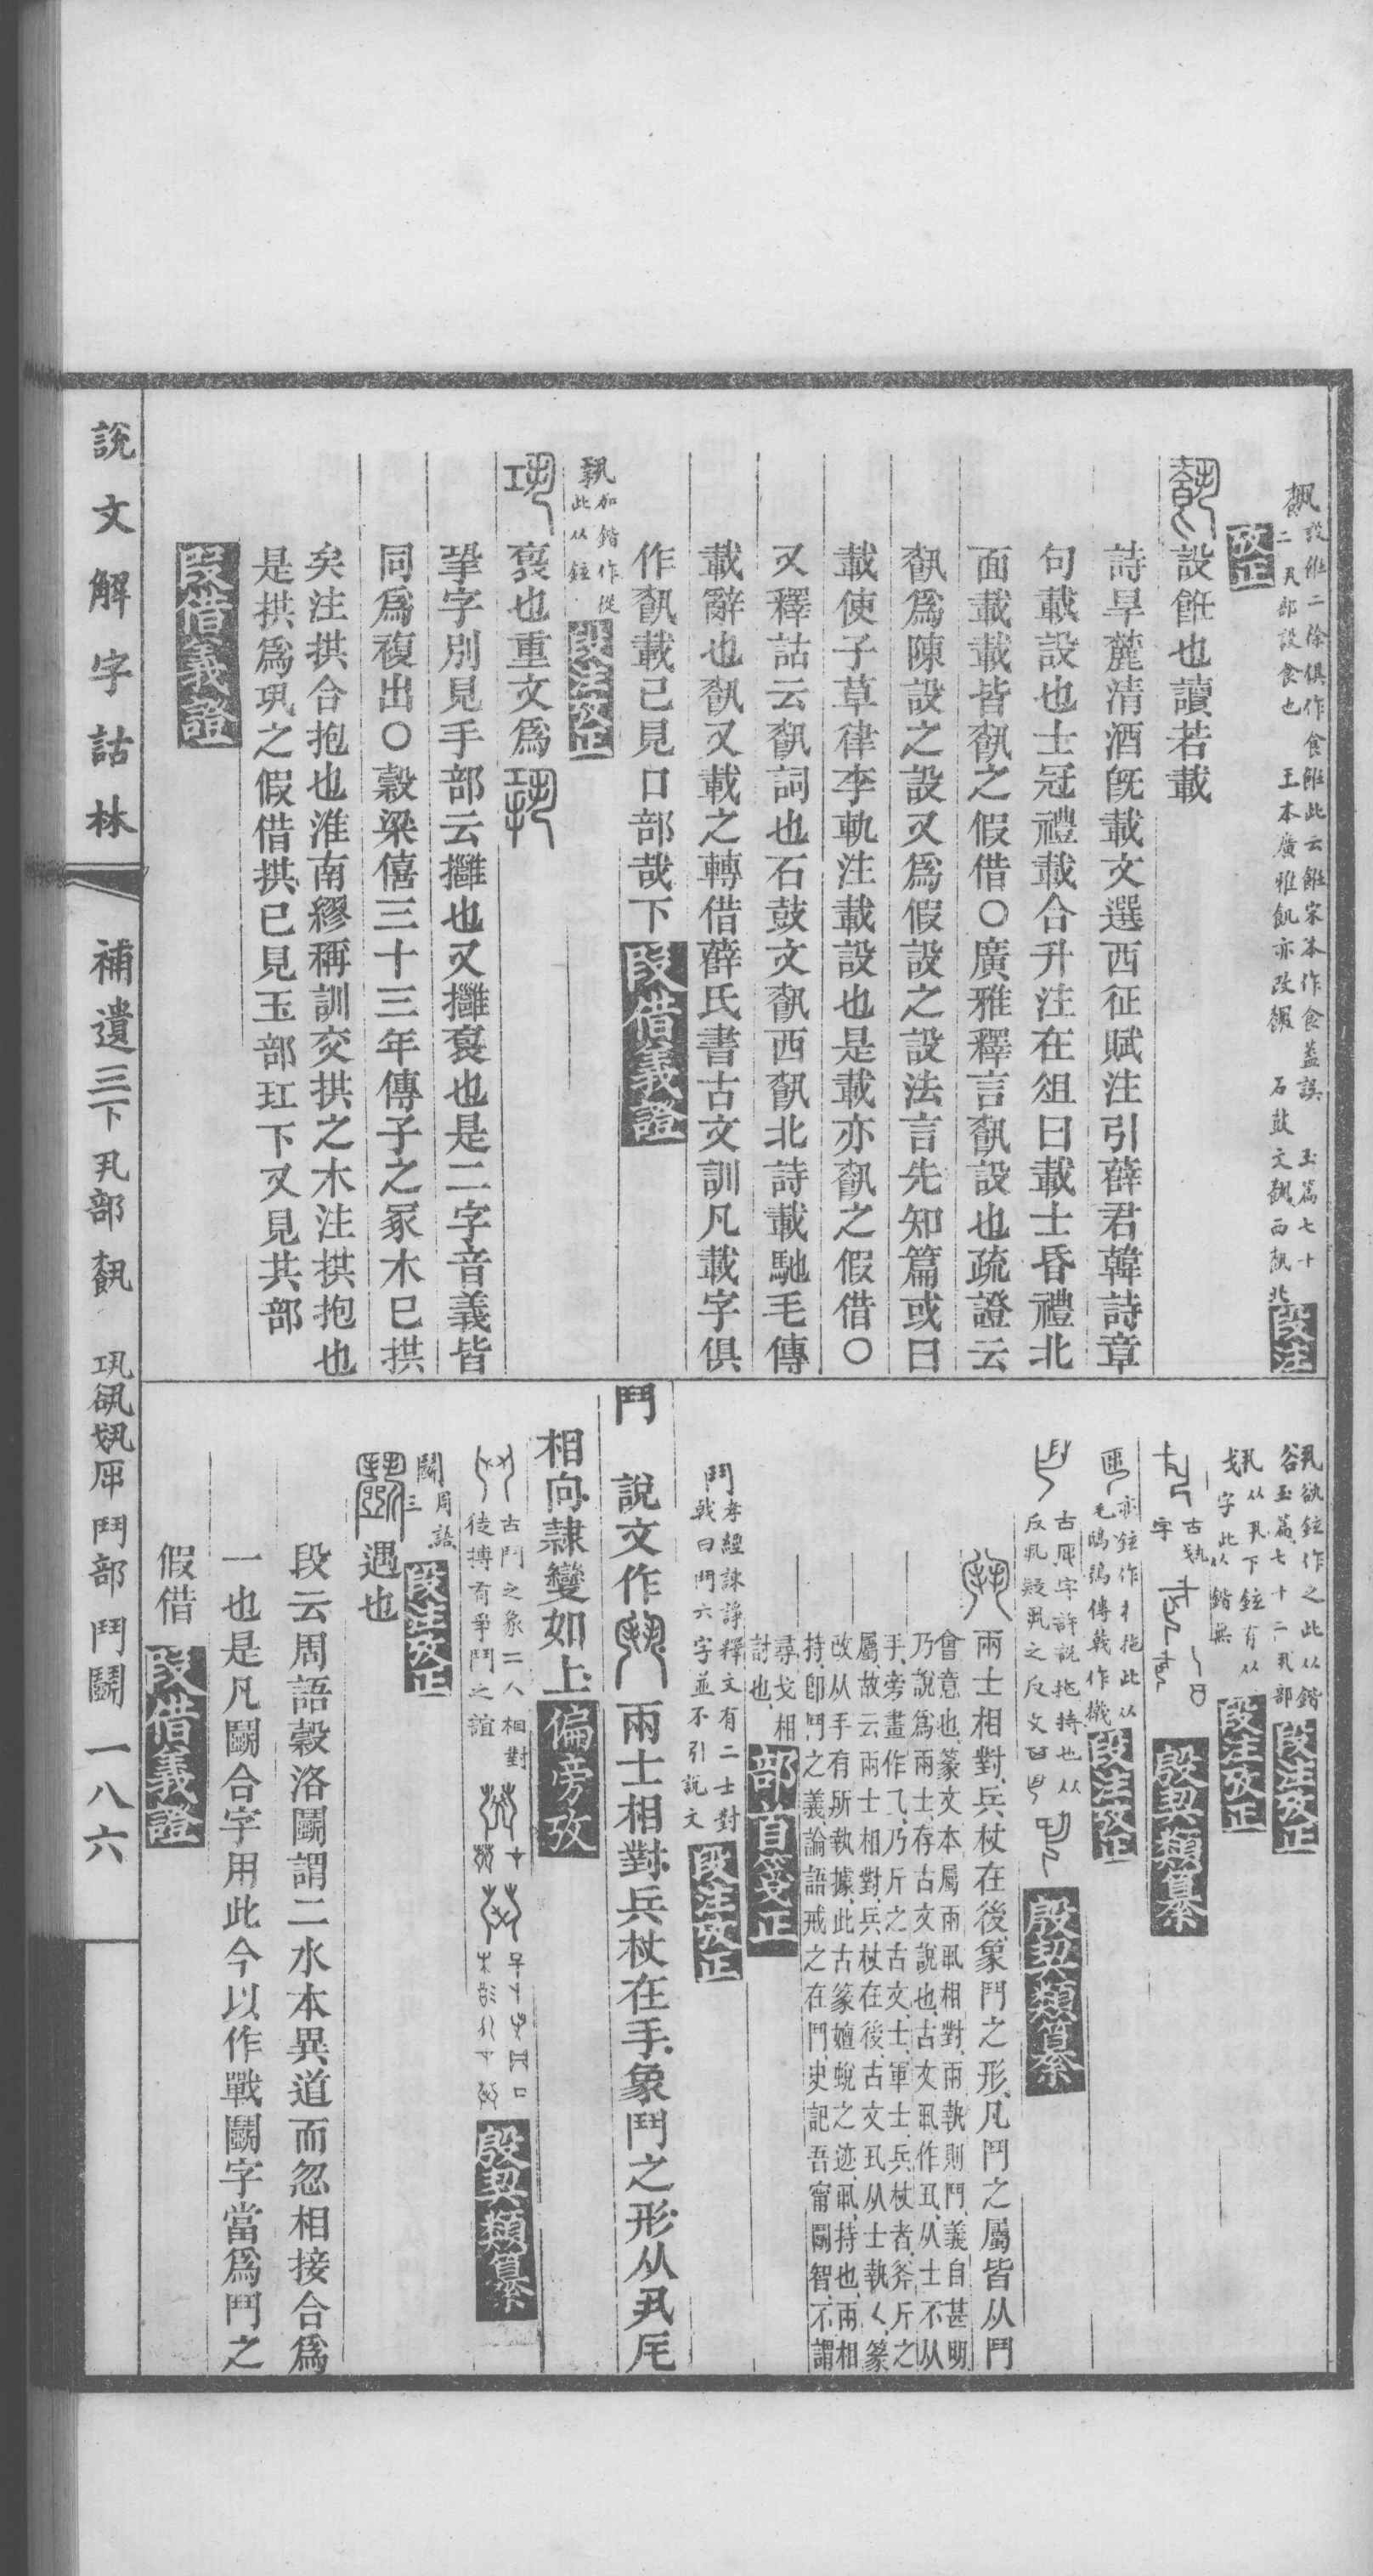 設飪二徐俱作食飪此云飪宋本作食蓋誤　玉篇七十
二丮部設食也　王本廣雅飢亦改　石鼓文　西　北段注
攷正
設飪也讀若載
詩旱麓清酒旣載文選西征賦注引薛君韓詩章
句載設也士冠禮載合升注在俎曰載士昏禮北
面載載皆𩛥之假借〇廣雅釋言𩛥設也疏證云
𩛥爲陳設之設又爲假設之設法言先知篇或曰
載使子草律李軌注載設也是載亦𩛥之假借〇
又釋詁云𩛥詞也石鼓文𩛥西𩛥北詩載馳毛傳
載辭也𩛥又載之轉借薛氏書古文訓凡載字俱
作𩛥載已見口部哉下　段借義證
加鍇作從
此从鉉段注攷正
袌也重文爲
𢀜字別見手部云攤也又攤袌也是二字音義皆
同爲複出〇穀梁僖三十三年傳子之冢木已拱
矣注拱合抱也淮南繆稱訓交拱之木注拱抱也
是拱爲巩之假借拱已見玉部玒下又見共部
段借義證
鉉作之此从鍇
玉篇七十二丮部　段注攷正
从丮下鉉有从
戈字此从鍇無　段注攷正
古埶
字　殷契類纂
亦鉉作扌拖此从
毛鴟鴞傳𢧢作撠　段注攷正
古厈字許説拖持也从
反丮疑丮之反文　殷契類纂
兩士相對兵杖在後象鬥之形凡鬥之屬皆从鬥
會意也篆文本屬兩丮相對兩執則鬥義自甚明
乃說爲兩士存古文說也古文丮作丑从士不从
手旁畫作乁乃斤之古文士軍士兵杖者斧斤之
屬故云兩士相對兵杖在後古文丮从士執乀篆
改从手有所執據此古篆嬗蛻之迹丮持也兩相
持卽鬥之義論語戒之在鬥史記吾甯鬭智不謂
尋戈相
討也　部首箋正
鬥孝經諫諍釋文有二士對
戟曰鬥六字並不引說文　段注攷正
鬥　說文作　兩士相對兵杖在手象鬥之形从丮厇
相向隷變如上　偏旁攷
古鬥之象二人相對
徒搏有爭鬥之誼　殷契類纂
鬭周語
三　段注攷正
遇也
段云周語穀洛鬭謂二水本異道而忽相接合爲
一也是凡鬭合字用此今以作戰鬭字當爲鬥之
假借　段借義證
說文解字詁林　補遺三下丮部　鬥部　鬥鬭　一八六